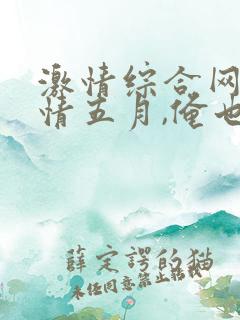 激情综合网
情五月,俺也
薛定谔的猫
未经同意禁止转载